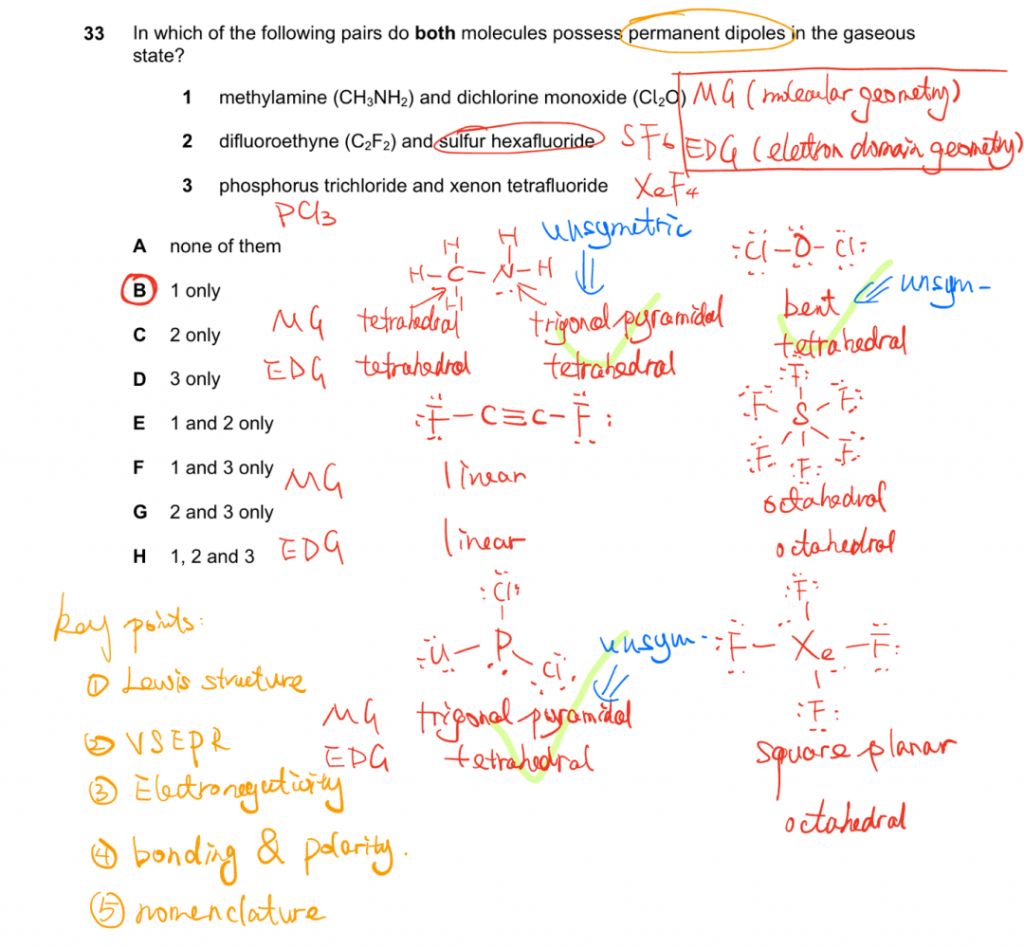 33 In which of the following pairs do both molecules possess permanent dipoles in the gaseous
state?
1 methylamine (CH₃NH₂) and dichlorine monoxide (Cl₂O)
MG (molecular geometry)
2 difluoroethyne (C₂F₂) and sulfur hexafluoride
SF6
EDG (electron domain geometry)
3 phosphorus trichloride and xenon tetrafluoride
XeF4
PCl3
A none of them
B 1 only
C 2 only
D 3 only
E 1 and 2 only
F 1 and 3 only
G 2 and 3 only
H 1, 2 and 3
unsymetric
H H
H-C-N-H
H
:Cl-O-Cl:
unsym-
MG tetrahedral trigonal pyramidal bent
EDG tetrahedral tetrahedral tetrahedral
:F-C≡C-F:
F
F S F
F F F
MG linear octahedral
EDG linear octahedral
:Cl:
P
Cl
unsym-
:F:
:F-Xe-F:
:F:
MG trigonal pyramidal square planar
EDG tetrahedral octahedral
key points:
① Lewis structure
② VSEPR
③ Electronegativity
④ bonding & polarity.
⑤ nomenclature